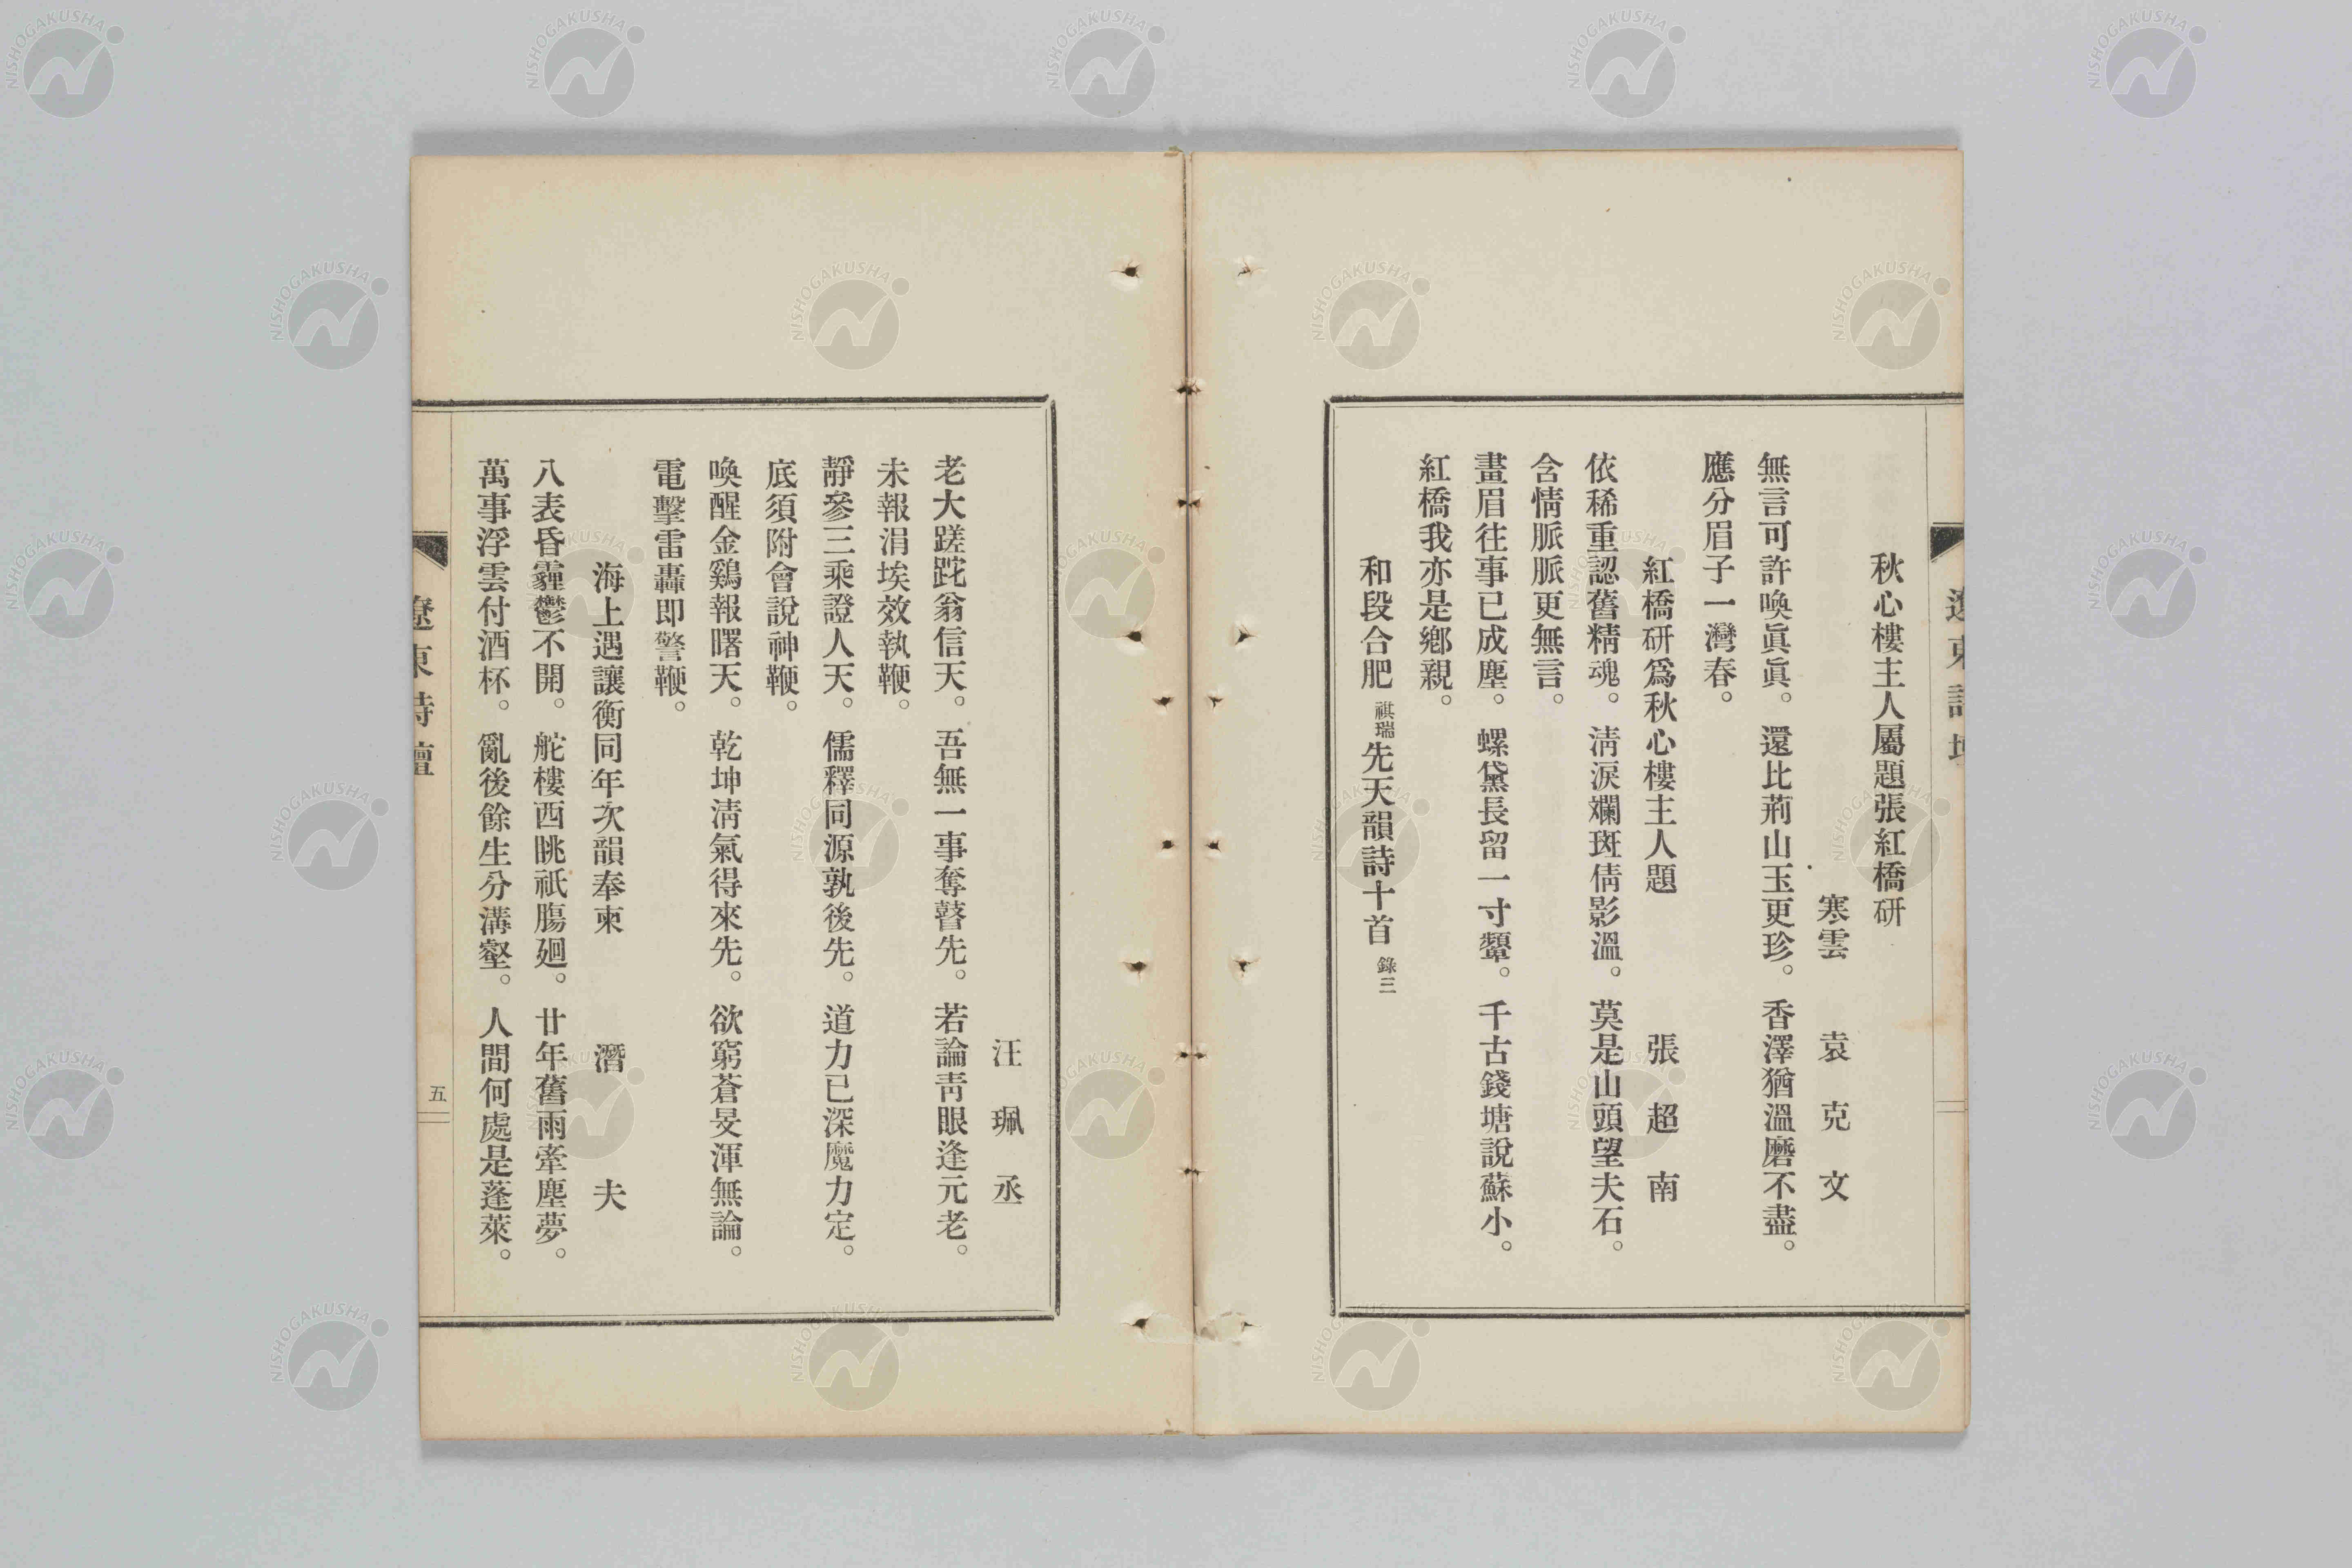 秋心樓主人屬題張紅橋研
寒雲　袁克文
無言可許喚眞眞。還比荊山玉更珍。香澤猶溫磨不盡。
應分眉子一灣春。
紅橋研爲秋心樓主人題　張超南
依稀重認舊精魂。淸淚斕斑倩影溫。莫是山頭望夫石。
含情脈脈更無言。
畫眉往事已成塵。螺黛長留一寸顰。千古錢塘說蘇小。
紅橋我亦是鄕親。
和段合肥祺瑞先天韻詩十首錄三
汪珮丞
老大蹉跎翁信天。吾無一事奪瞽先。若論靑眼逢元老。
未報涓埃效執鞭。
靜參三乘證人天。儒釋同源孰後先。道力已深魔力定。
底須附會說神鞭。
喚醒金鷄報曙天。乾坤淸氣得來先。欲窮蒼旻渾無論。
電擊雷轟卽警鞭。
海上遇讓衡同年次韻奉柬　潛夫
八表昏霾鬱不開。舵樓西眺祇腸廻。廿年舊雨牽塵夢。
萬事浮雲付酒杯。亂後餘生分溝壑。人間何處是蓬萊。
遼東詩壇
五
NISHOGAKUSHA